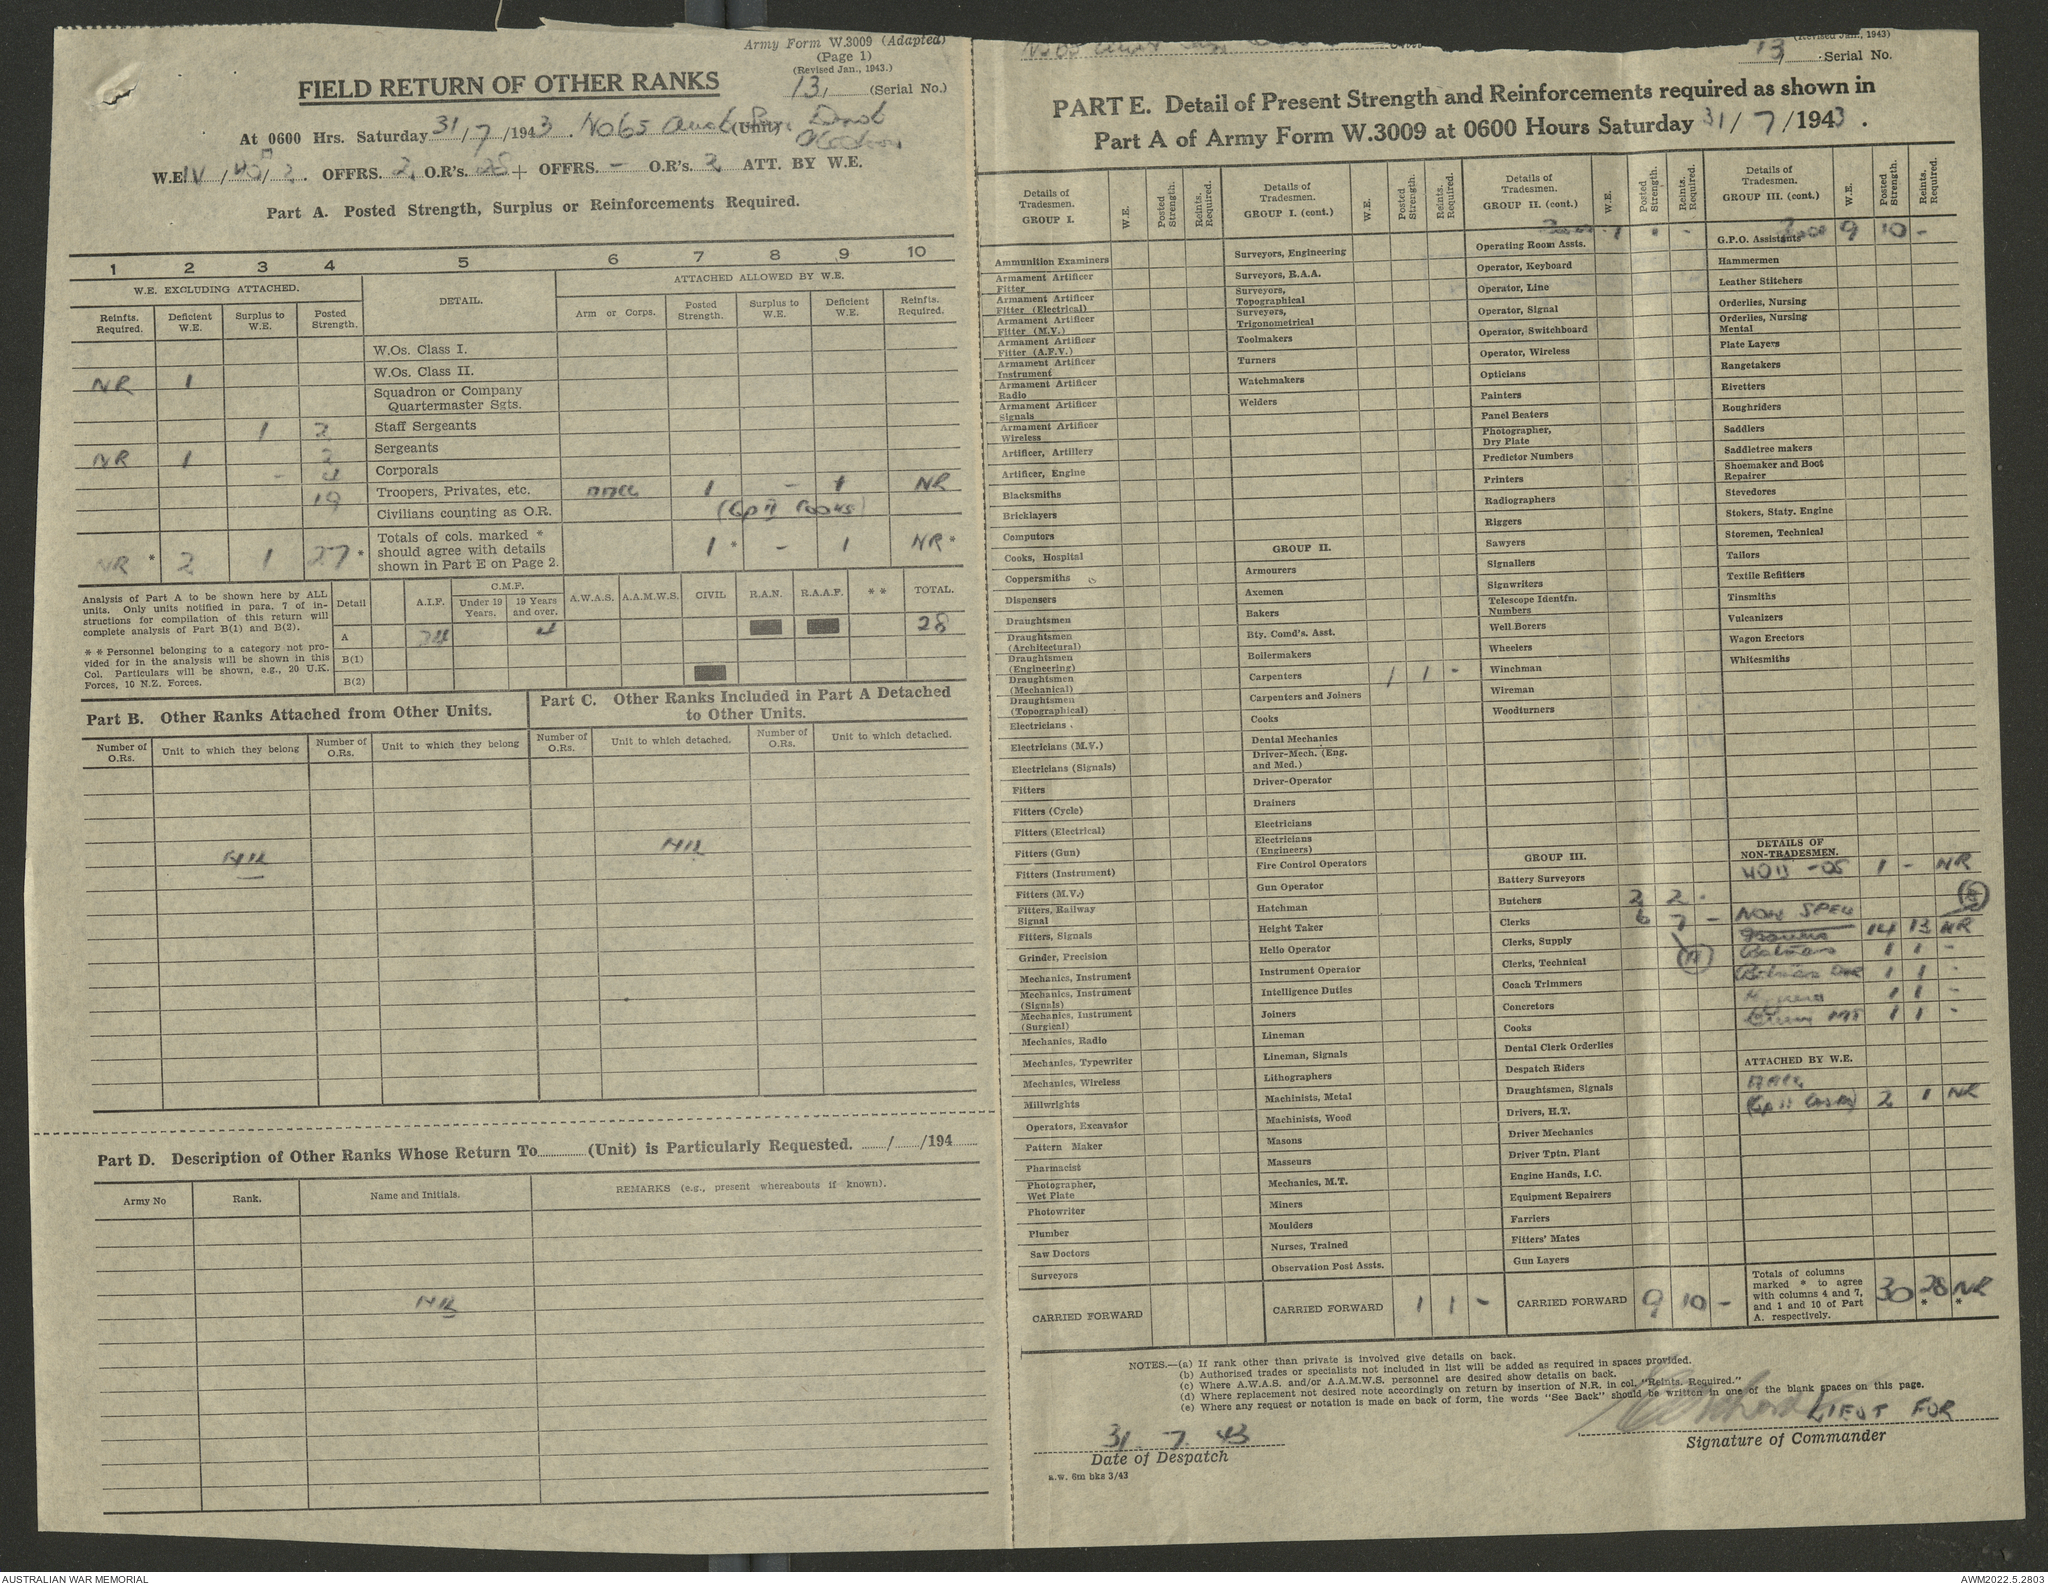 Army Form W.3009 (Adapted)
(Page 1)
(Revised Jan., 1943.)
FIELD RETURN OF OTHER RANKS
13, (Serial No.)
At 0600 Hrs. Saturday 31/7/1943. No 65 Aust (Unit)
W.E. IV / / 2. OFFRS. 2, O.R's. 28 + OFFRS. — O.R's. 2 ATT. BY W.E.
Part A. Posted Strength, Surplus or Reinforcements Required.
1 2 3 4 5 6 7 8 9 10
W.E. EXCLUDING ATTACHED. DETAIL. ATTACHED ALLOWED BY W.E.
Reinfts. Required. Deficient W.E. Surplus to W.E. Posted Strength. Arm or Corps. Posted Strength. Surplus to W.E. Deficient W.E. Reinfts. Required.
W.Os. Class I.
W.Os. Class II.
NR 1 Squadron or Company
Quartermaster Sgts.
1 2 Staff Sergeants
NR 1 2 Sergeants
- 4 Corporals
19 Troopers, Privates, etc. AACC 1 - 1 NR
Civilians counting as O.R. (Gp II Cooks)
NR * 2 1 27 * Totals of cols. marked *
should agree with details
shown in Part E on Page 2. 1 * - 1 NR *
Analysis of Part A to be shown here by ALL
units. Only units notified in para. 7 of in-
structions for compilation of this return will
complete analysis of Part B(1) and B(2).
* * Personnel belonging to a category not pro-
vided for in the analysis will be shown in this
Col. Particulars will be shown, e.g., 20 U.K.
Forces, 10 N.Z. Forces.
Detail A.I.F. C.M.F. Under 19 Years. 19 Years and over. A.W.A.S. A.A.M.W.S. CIVIL R.A.N. R.A.A.F. * * TOTAL.
A 24 4 28
B(1)
B(2)
Part B. Other Ranks Attached from Other Units.
Number of O.Rs. Unit to which they belong Number of O.Rs. Unit to which they belong
NIL
Part C. Other Ranks Included in Part A Detached
to Other Units.
Number of O.Rs. Unit to which detached. Number of O.Rs. Unit to which detached.
NIL
Part D. Description of Other Ranks Whose Return To............(Unit) is Particularly Requested. ......./......./194.......
Army No Rank. Name and Initials. REMARKS (e.g., present whereabouts if known).
NIL
(Revised Jan., 1943)
13, Serial No.
PART E. Detail of Present Strength and Reinforcements required as shown in
Part A of Army Form W.3009 at 0600 Hours Saturday 31/7/1943.
Details of Tradesmen. GROUP I. W.E. Posted Strength. Reints. Required.
Ammunition Examiners
Armament Artificer Fitter
Armament Artificer Fitter (Electrical)
Armament Artificer Fitter (M.V.)
Armament Artificer Fitter (A.F.V.)
Armament Artificer Instrument
Armament Artificer Radio
Armament Artificer Signals
Armament Artificer Wireless
Artificer, Artillery
Artificer, Engine
Blacksmiths
Bricklayers
Computors
Cooks, Hospital
Coppersmiths
Dispensers
Draughtsmen
Draughtsmen (Architectural)
Draughtsmen (Engineering)
Draughtsmen (Mechanical)
Draughtsmen (Topographical)
Electricians
Electricians (M.V.)
Electricians (Signals)
Fitters
Fitters (Cycle)
Fitters (Electrical)
Fitters (Gun)
Fitters (Instrument)
Fitters (M.V.)
Fitters, Railway Signal
Fitters, Signals
Grinder, Precision
Mechanics, Instrument
Mechanics, Instrument (Signals)
Mechanics, Instrument (Surgical)
Mechanics, Radio
Mechanics, Typewriter
Mechanics, Wireless
Millwrights
Operators, Excavator
Pattern Maker
Pharmacist
Photographer, Wet Plate
Photowriter
Plumber
Saw Doctors
Surveyors
CARRIED FORWARD
Details of Tradesmen. GROUP I. (cont.) W.E. Posted Strength. Reints. Required.
Surveyors, Engineering
Surveyors, R.A.A.
Surveyors, Topographical
Surveyors, Trigonometrical
Toolmakers
Turners
Watchmakers
Welders
GROUP II.
Armourers
Axemen
Bakers
Bty. Comd's. Asst.
Boilermakers
Carpenters 1 1 -
Carpenters and Joiners
Cooks
Dental Mechanics
Driver-Mech. (Eng. and Med.)
Driver-Operator
Drainers
Electricians
Electricians (Engineers)
Fire Control Operators
Gun Operator
Hatchman
Height Taker
Helio Operator
Instrument Operator
Intelligence Duties
Joiners
Lineman
Lineman, Signals
Lithographers
Machinists, Metal
Machinists, Wood
Masons
Masseurs
Mechanics, M.T.
Miners
Moulders
Nurses, Trained
Observation Post Assts.
CARRIED FORWARD 1 1 -
Details of Tradesmen. GROUP II. (cont.) W.E. Posted Strength. Reints. Required.
Operating Room Assts.
Operator, Keyboard
Operator, Line
Operator, Signal
Operator, Switchboard
Operator, Wireless
Opticians
Painters
Panel Beaters
Photographer, Dry Plate
Predictor Numbers
Printers
Radiographers
Riggers
Sawyers
Signallers
Signwriters
Telescope Identfn. Numbers
Well Borers
Wheelers
Winchman
Wireman
Woodturners
GROUP III.
Battery Surveyors
Butchers 2 2 -
Clerks 6 7 -
Clerks, Supply
Clerks, Technical
Coach Trimmers
Concretors
Cooks
Dental Clerk Orderlies
Despatch Riders
Draughtsmen, Signals
Drivers, H.T.
Driver Mechanics
Driver Tptn, Plant
Engine Hands, I.C.
Equipment Repairers
Farriers
Fitters' Mates
Gun Layers
CARRIED FORWARD 9 10 -
Details of Tradesmen. GROUP III. (cont.) W.E. Posted Strength. Reints. Required.
G.P.O. Assistants 9 10 -
Hammermen
Leather Stitchers
Orderlies, Nursing
Orderlies, Nursing Mental
Plate Layers
Rangetakers
Rivetters
Roughriders
Saddlers
Saddletree makers
Shoemaker and Boot Repairer
Stevedores
Stokers, Staty. Engine
Storemen, Technical
Tailors
Textile Refitters
Tinsmiths
Vulcanizers
Wagon Erectors
Whitesmiths
DETAILS OF NON-TRADESMEN.
1 - NR
NON SPEC
14 13 NR
Batmen 1 1 -
Batman 1 1 -
1 1 -
1 1 -
ATTACHED BY W.E.
AACC
(Gp II Cooks) 2 1 NR
Totals of columns
marked * to agree
with columns 4 and 7,
and 1 and 10 of Part
A. respectively. 30 28 * NR *
NOTES.—(a) If rank other than private is involved give details on back.
(b) Authorised trades or specialists not included in list will be added as required in spaces provided.
(c) Where A.W.A.S. and/or A.A.M.W.S. personnel are desired show details on back.
(d) Where replacement not desired note accordingly on return by insertion of N.R. in col. "Reints. Required."
(e) Where any request or notation is made on back of form, the words "See Back" should be written in one of the blank spaces on this page.
31. 7. 43
Date of Despatch
LIEUT FOR
Signature of Commander
A.W. 6m bks 3/43
AUSTRALIAN WAR MEMORIAL
AWM2022.5.2803